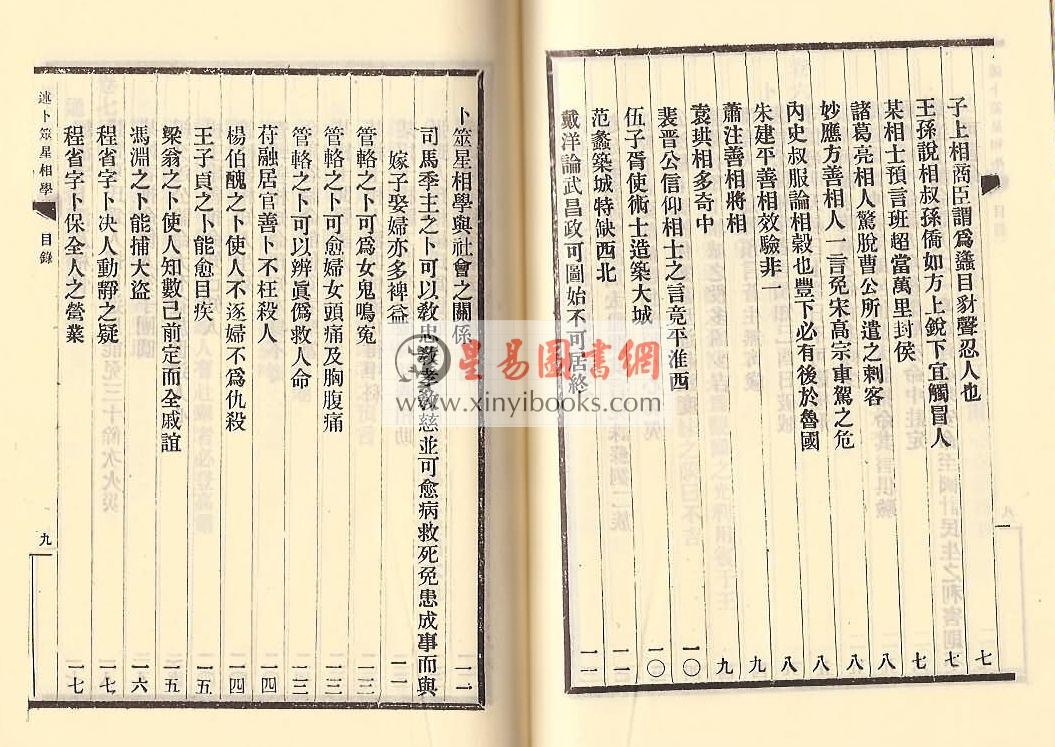 子上相商臣謂爲蠭目豺聲忍人也 七
王孫說相叔孫僑如方上銳下宜觸冒人 七
某相士預言班超當萬里封侯 七
諸葛亮相人驚脫曹公所遣之刺客 八
妙應方善相人一言免宋高宗車駕之危 八
內史叔服論相穀也豐下必有後於魯國 八
朱建平善相效驗非一 九
蕭注善相將相 九
袁珙相多奇中 一〇
裴晉公信仰相士之言竟平淮西 一〇
伍子胥使術士造築大城 一一
范蠡築城特缺西北
戴洋論武昌政可圖始不可居終 一一
八
卜筮星相學與社會之關係
司馬季主之卜可以敎忠敎孝敎慈並可愈病救死免患成事而與
嫁子娶婦亦多裨益 一一
管輅之卜可爲女鬼鳴寃 一三
管輅之卜可愈婦女頭痛及胸腹痛 一三
管輅之卜可以辨眞僞救人命 一三
苻融居官善卜不枉殺人 一四
楊伯醜之卜使人不逐婦不爲仇殺 一四
王子貞之卜能愈目疾 一五
梁翁之卜使人知數已前定而全戚誼 一五
馮淵之卜能捕大盜 一六
程省字卜决人動靜之疑 一七
程省字卜保全人之營業 一七
述卜筮星相學 目錄
九
星易圖書網
www.xinyibooks.com